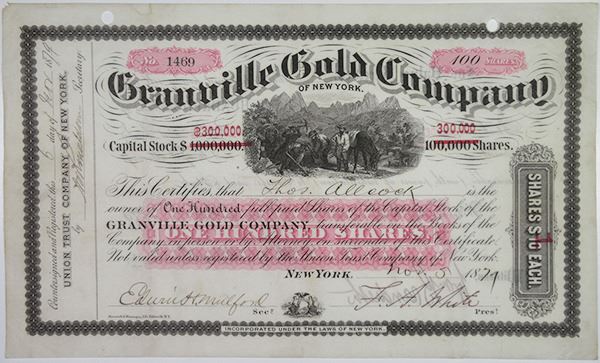 No. 1469
100 SHARES.
Granville Gold Company
OF NEW YORK.
$300,000.
Capital Stock $ 1,000,000.
300,000
100,000 Shares.
This Certifies, that Thos. Allcock is the
owner of One Hundred full-paid Shares of the Capital Stock of the
GRANVILLE GOLD COMPANY, on the Books of the
Company, in person or by Certificate.
Not valid unless registered by the Union Trust Company of New York.
ONE HUNDRED SHARES
NEW YORK. Nov. 5 1879
Secy
F. A. White Prest
INCORPORATED UNDER THE LAWS OF NEW YORK.
Countersigned and Registered this 6 day of Nov 1879
UNION TRUST COMPANY OF NEW YORK.
by Secretary
SHARES $10 EACH.
1